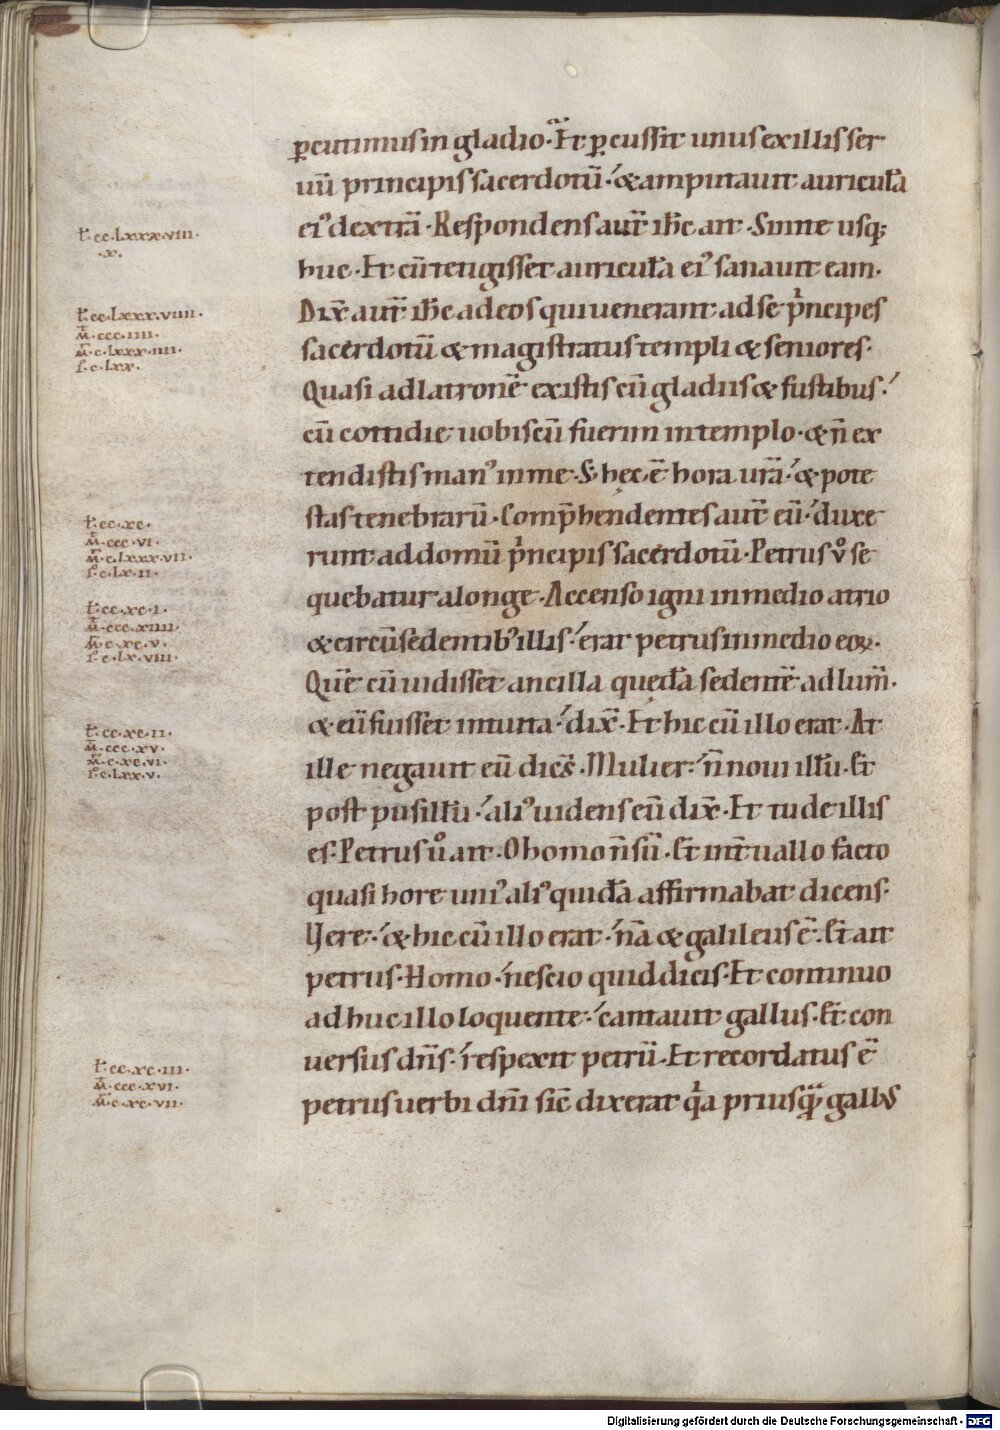 ꝑcutimus in gladio · Et ꝑcussit unus ex illis ser
uū principis sacerdotū · & amputauit auriculā
ei᾽ dextrā · Respondens aut̄ ih̄c ait · Sinite usq;
huc · Et cū tetigisset auriculā ei᾽ sanauit eam ·
Dix̄ aut̄ ih̄c ad eos qui uenerant ad se pͥncipes
sacerdotū & magistratus templi & seniores ·
Quasi ad latronē existis cū gladiis & fustibus ·
cū cottidie uobiscū fuerim in templo · & n̄ ex
tendistis man᾽ in me · S; hęc ē hora ur̄a · & pote
stas tenebrarū · Comp̄hendentes aut̄ eū · duxe
runt ad domū pͥncipis sacerdotū · Petrus ůo se
quebatur a longe · Accenso igni in medio atrio
& circūsedentib᾽ illis · erat petrus in medio eoꝝ ·
Quē cū uidisset ancilla quędā sedentē ad lum̄ ·
& eū fuisset intuita · dix̄ · Et hic cū illo erat · At
ille negauit eū dic̄s · Mulier · n̄ noui illū · Et
post pusillū · ali᾽ uidens eū dix̄ · Et tu de illis
es · Petrus uͦ ait · O homo n̄ sū · Et int̄uallo facto
quasi hore uni᾽ ali᾽ quidā affirmabat dicens ·
Vere · & hic cū illo erat · nā & galileus ē · Et ait
petrus · Homo · nescio quid dicis · Et continuo
adhuc illo loquente · cantauit gallus · Et con
uersus dn̄s · respexit petrū · Et recordatus ē
petrus uerbi dn̄i sic̄ dixerat qͥa priusquā gallus
ł · cc · lxxx · viii ·
· x ·
ł · cc · lxxx · viiii ·
m̄ · ccc · iiii ·
m̄ · c · lxxx · iiii ·
i͡o · c · lxx ·
ł · cc · xc ·
m̄ · ccc · vi ·
m̄ · c · lxxx · vii ·
i͡o · c · lx · ii ·
ł · cc · xc · i ·
m̄ · ccc · xiiii ·
m̄ · c · xc · v ·
i͡o · c · lx · viii ·
ł · cc · xc · ii ·
m̄ · ccc · xv ·
m̄ · c · xc · vi ·
i͡o · c · lxx · v ·
ł · cc · xc · iii ·
m̄ · ccc · xvi ·
m̄ · c · xc · vii ·
Digitalisierung gefördert durch die Deutsche Forschungsgemeinschaft - DFG